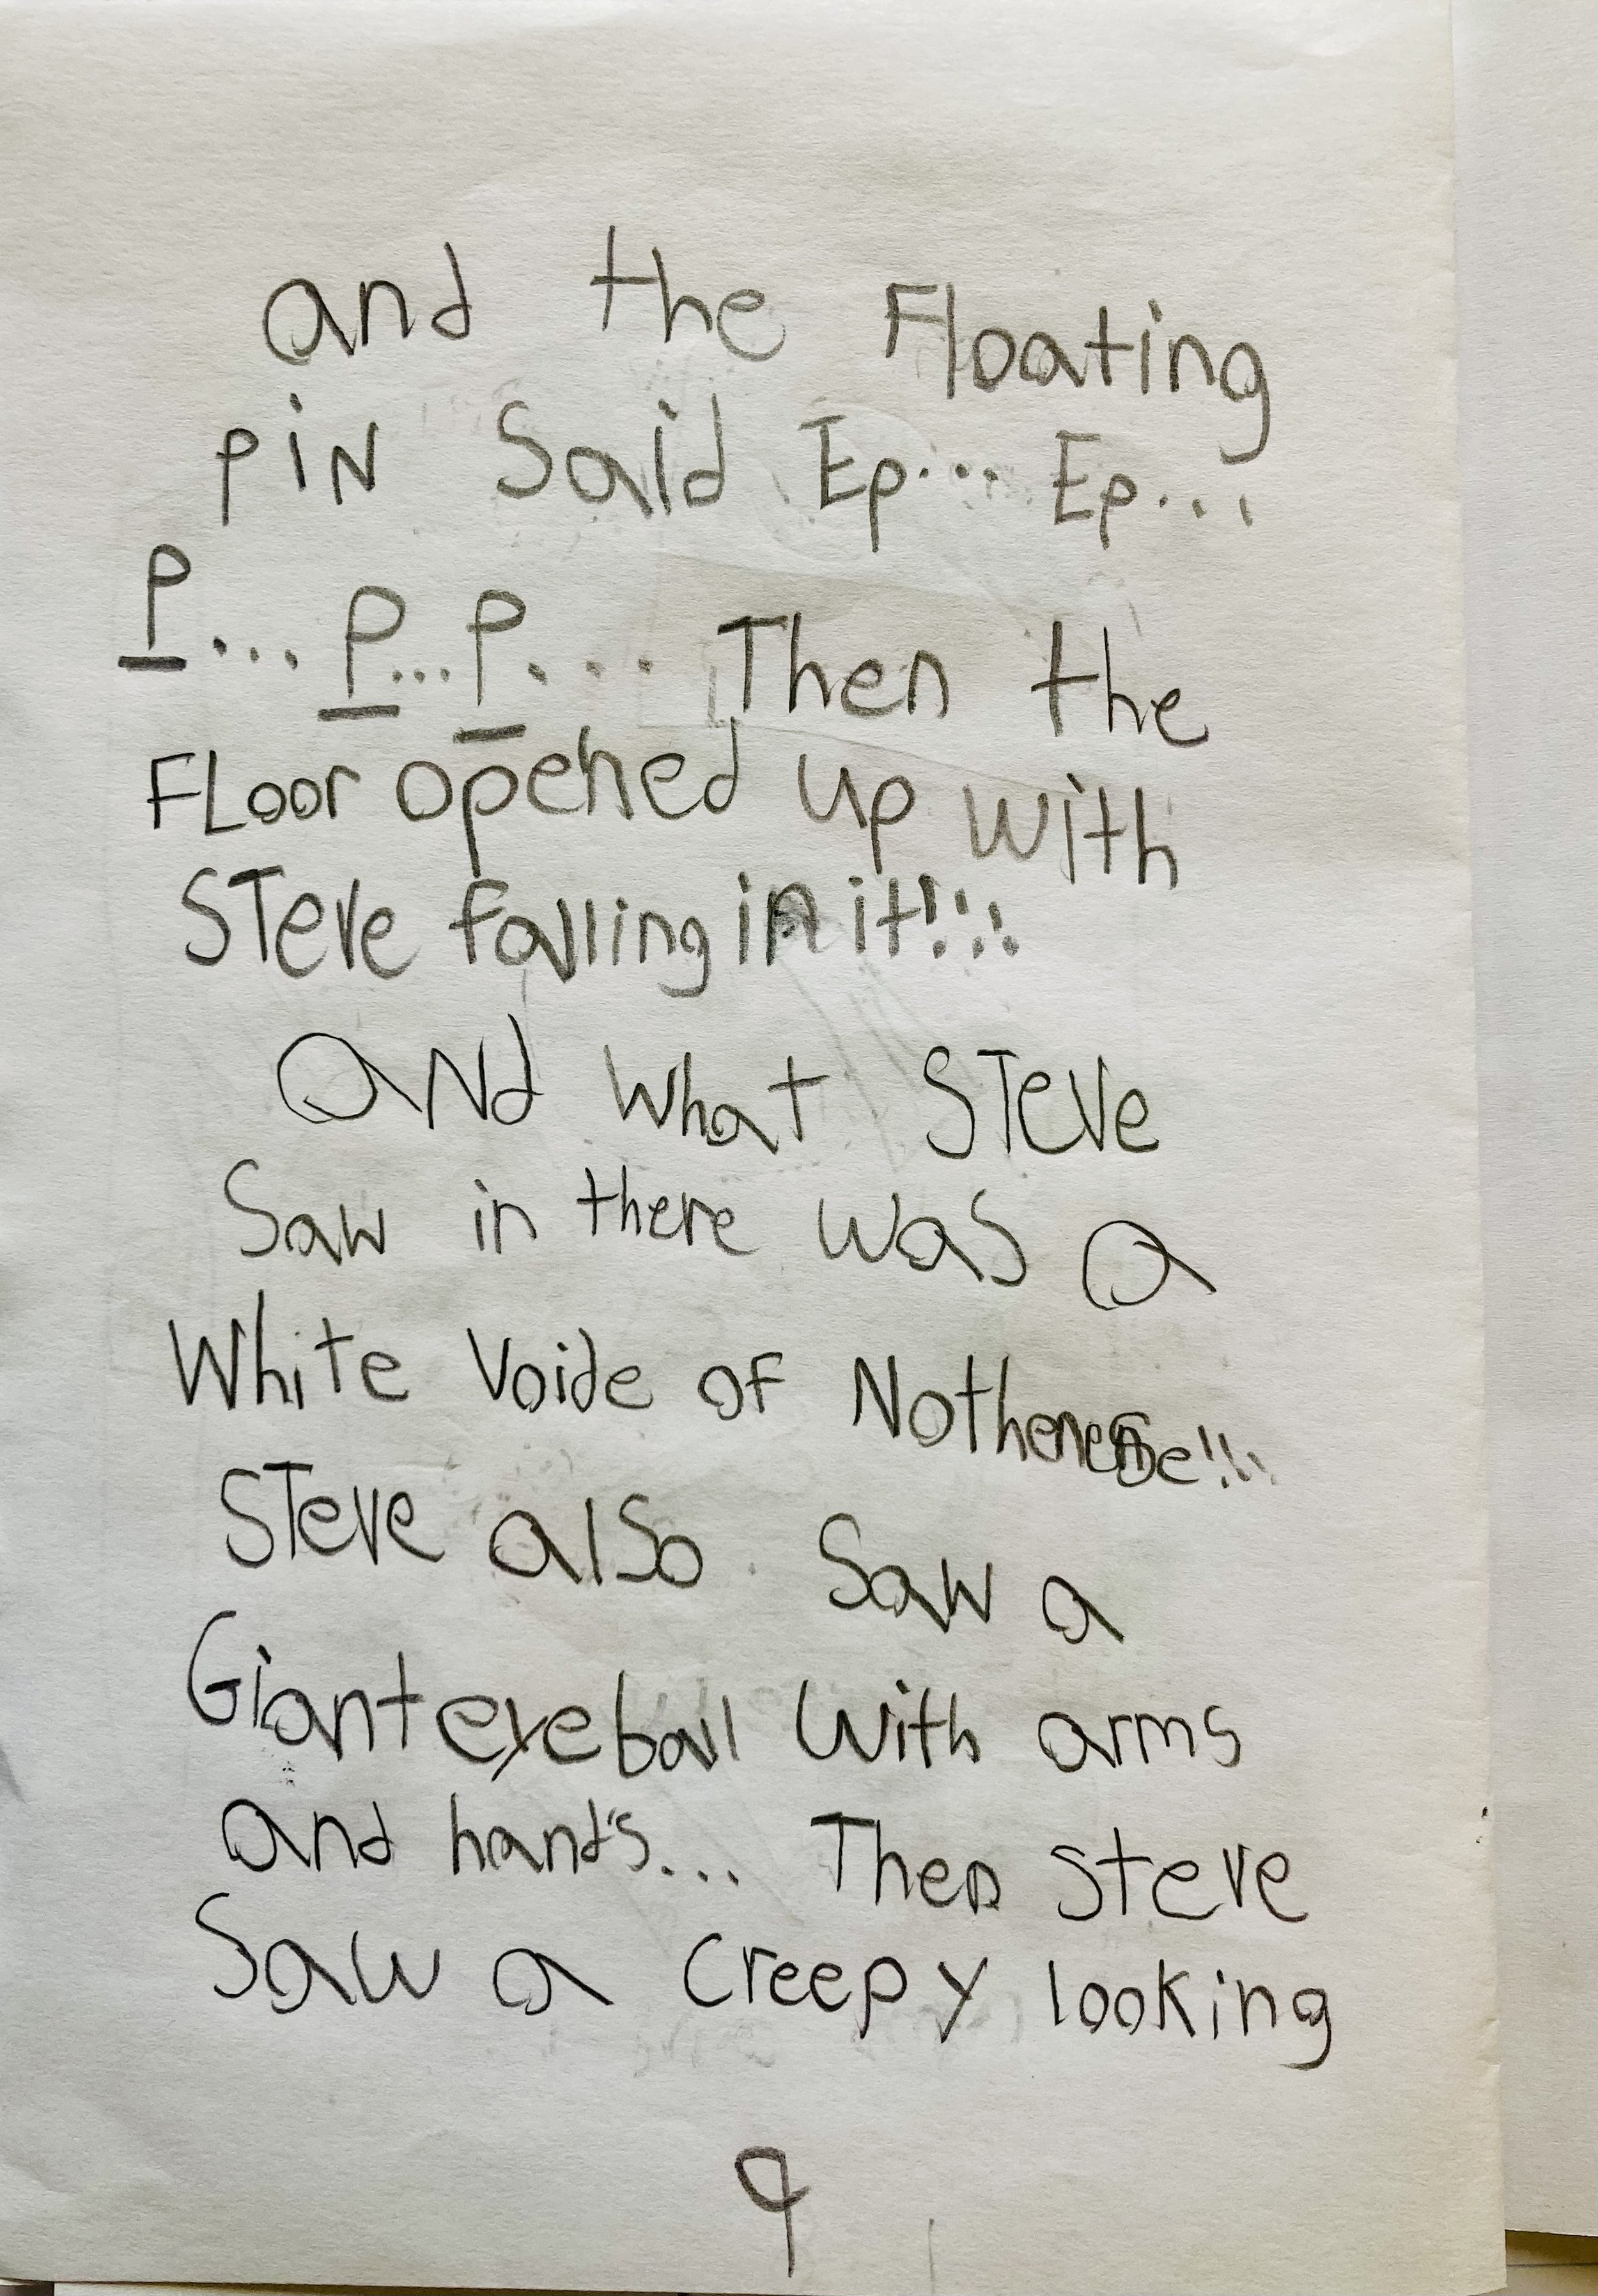 and the Floating
PiN Said Ep... Ep...
P... P... P.... Then the
FLoor opened up with
STeve falling in it!!!!
aNd what STeve
Saw in there was a
White Voide of
STeve also Saw a
Giant eyeball With arms
and hand's... Then steve
Saw a creepy looking
9